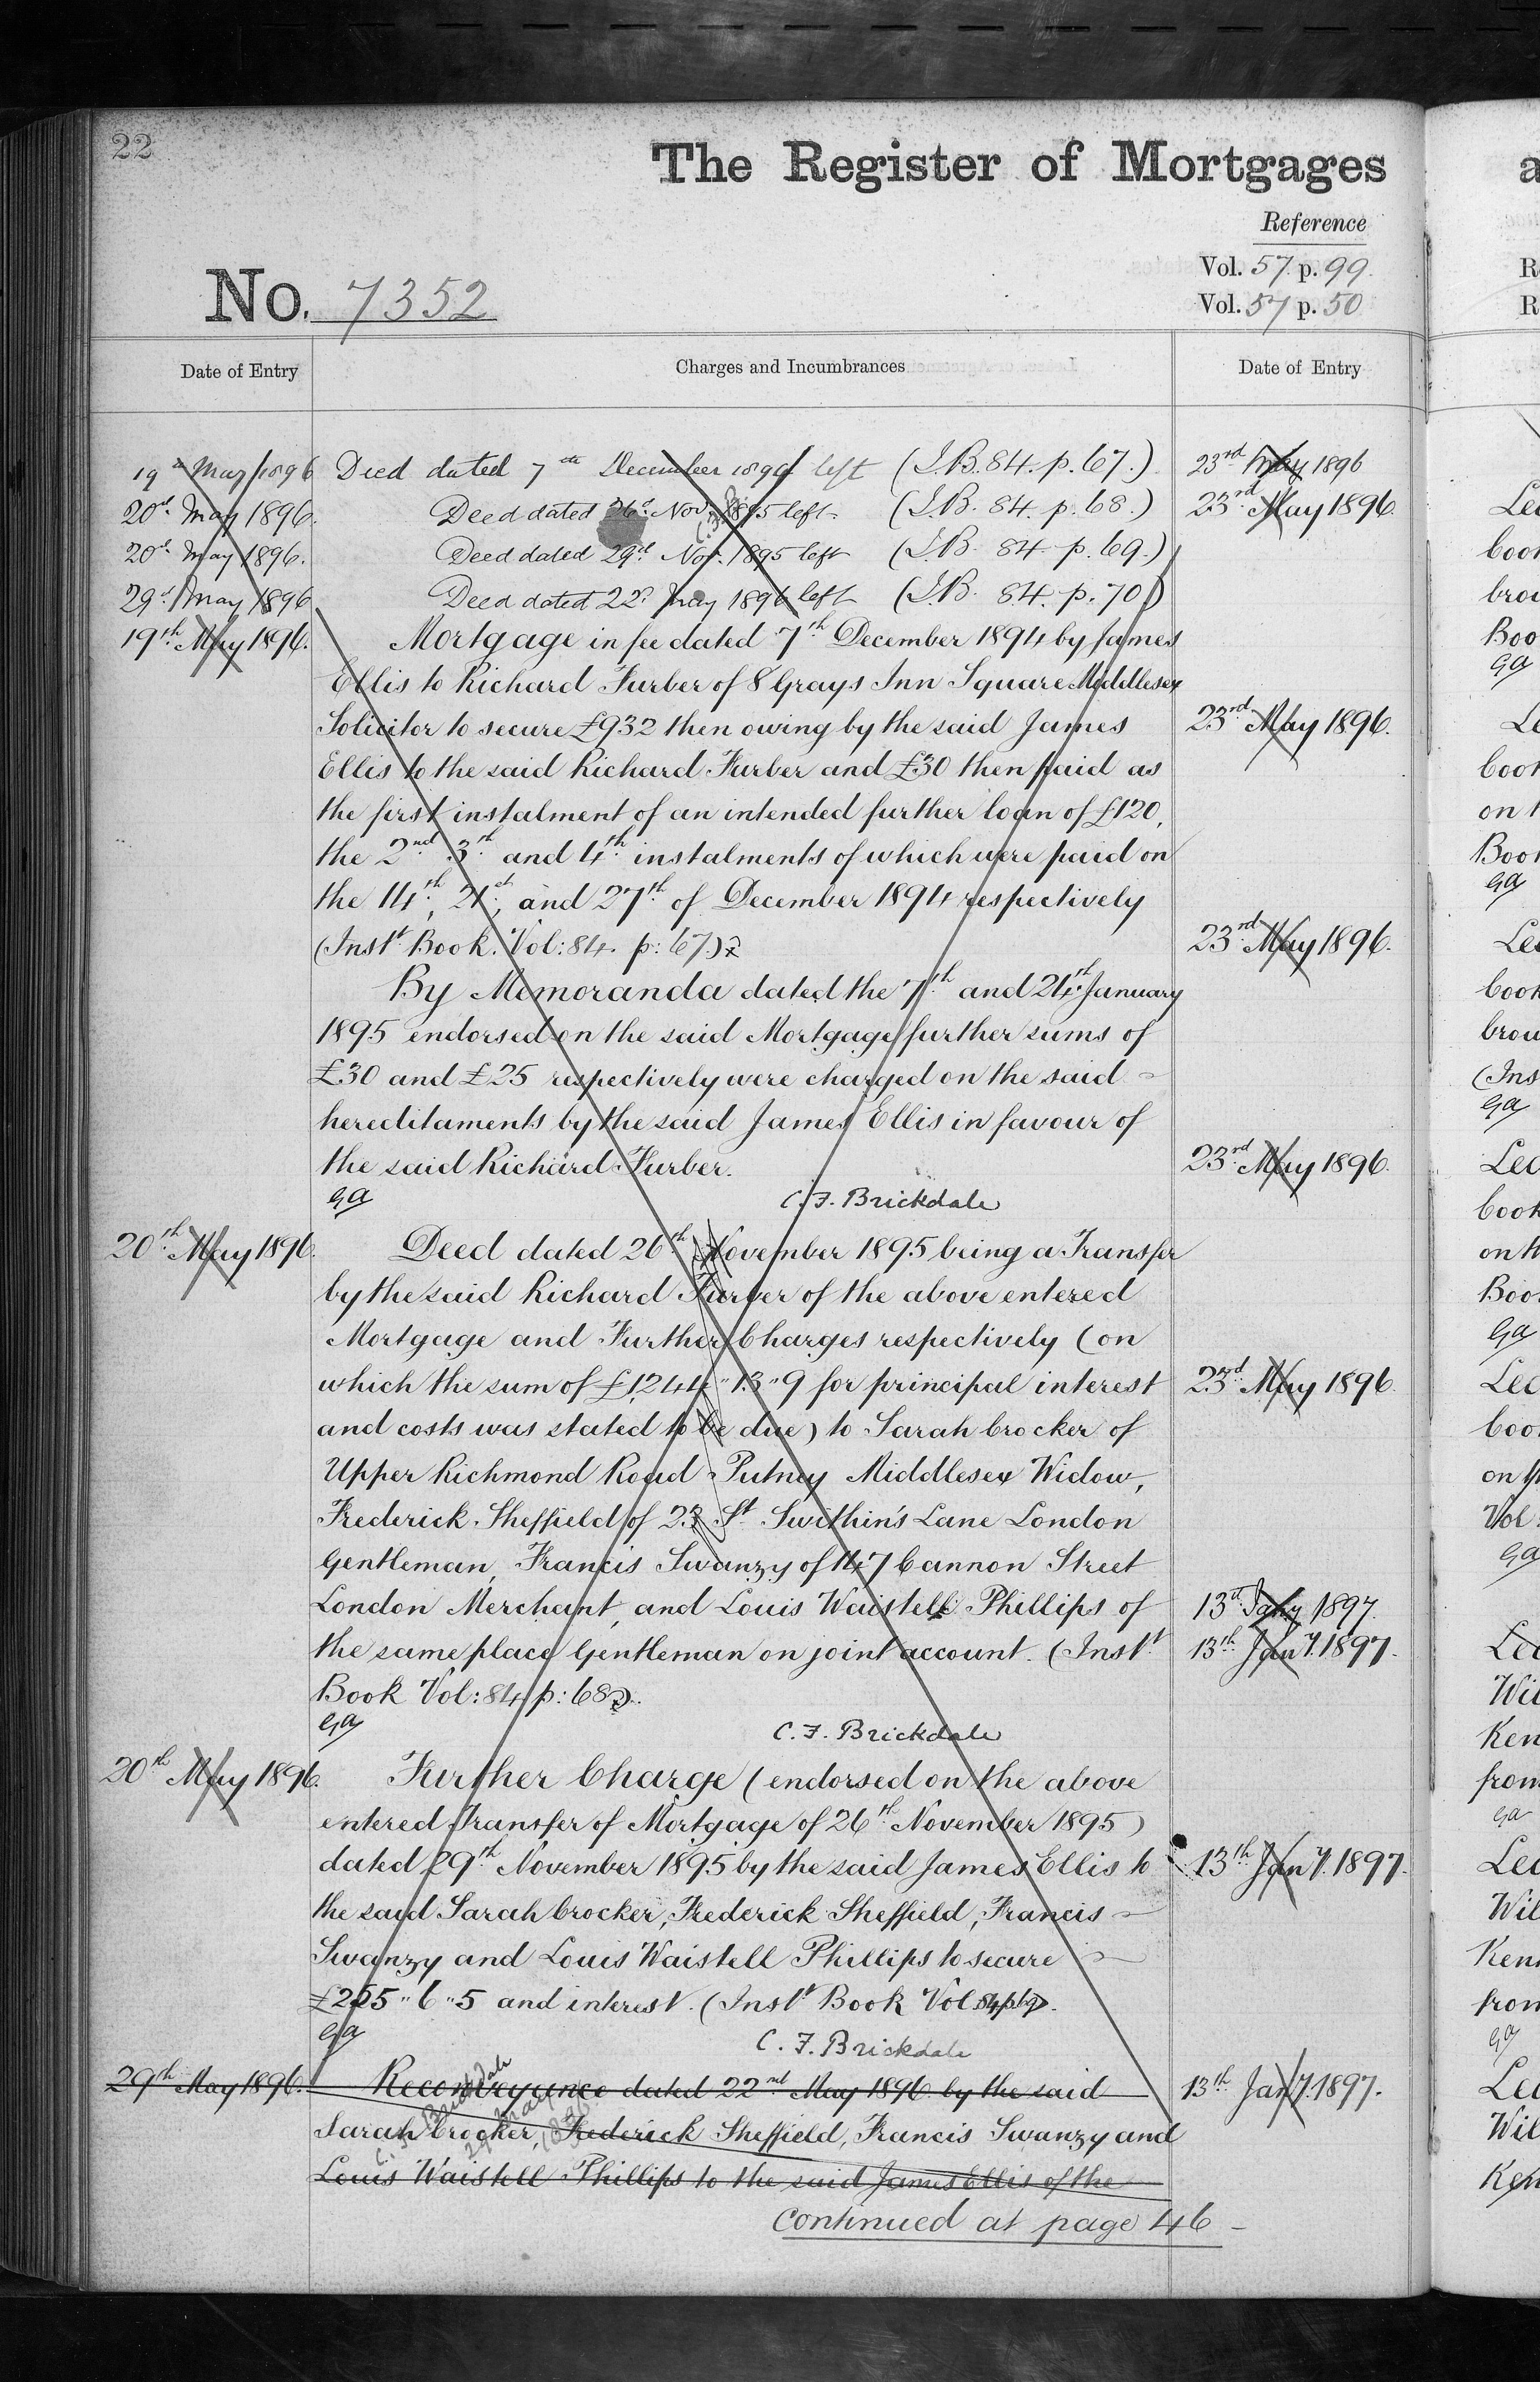 22
The Register of Mortgages
Reference
Vol. 57 p. 99
No. 7352
Vol. 57 p. 50
Date of Entry
Charges and Incumbrances
Date of Entry
19th May 1896 Deed dated 7th December 1894 left (I.B. 84. p. 67.) 23rd May 1896
20th May 1896. Deed dated 26th Nov. 1895 left. (I.B. 84. p. 68.) 23rd May 1896.
20th May 1896. Deed dated 29th Nov. 1895 left (I.B. 84. p. 69.)
29th May 1896 Deed dated 22nd May 1896 left (I.B. 84. p. 70)
19th May 1896. Mortgage in fee dated 7th December 1894 by James
Ellis to Richard Furber of 8 Grays Inn Square Middlesex
Solicitor to secure £932 then owing by the said James 23rd May 1896.
Ellis to the said Richard Furber and £30 then paid as
the first instalment of an intended further loan of £120,
the 2nd 3rd and 4th instalments of which were paid on
the 14th, 21st, and 27th of December 1894 respectively
(Inst Book. Vol: 84. p: 67.) 23rd May 1896.
By Memoranda dated the 7th and 24th January
1895 endorsed on the said Mortgage further sums of
£30 and £25 respectively were charged on the said
hereditaments by the said James Ellis in favour of
the said Richard Furber. 23rd May 1896.
GA C. F. Brickdale
20th May 1896. Deed dated 26th November 1895 being a Transfer
by the said Richard Furber of the above entered
Mortgage and Further Charges respectively (on
which the sum of £1244 " 13 " 9 for principal interest 23rd May 1896.
and costs was stated to be due) to Sarah Crocker of
Upper Richmond Road Putney Middlesex Widow,
Frederick Sheffield of 23 St Swithin's Lane London
Gentleman, Francis Swanzy of 147 Cannon Street
London Merchant, and Louis Waistell Phillips of 13th Jany 1897.
the same place Gentleman on joint account. (Inst 13th Jany. 1897.
Book Vol: 84 p: 68).
GA C. F. Brickdale
20th May 1896. Further Charge (endorsed on the above
entered Transfer of Mortgage of 26th November 1895)
dated 29th November 1895 by the said James Ellis to 13th Jany. 1897.
the said Sarah Crocker, Frederick Sheffield, Francis
Swanzy and Louis Waistell Phillips to secure
£255 " 6 " 5 and interest. (Inst Book Vol 84 p 69).
GA C. F. Brickdale
29th May 1896. Reconveyance dated 22nd May 1896 by the said 13th Jany. 1897.
Sarah Crocker, Frederick Sheffield, Francis Swanzy and
Louis Waistell Phillips to the said James Ellis of the
continued at page 46